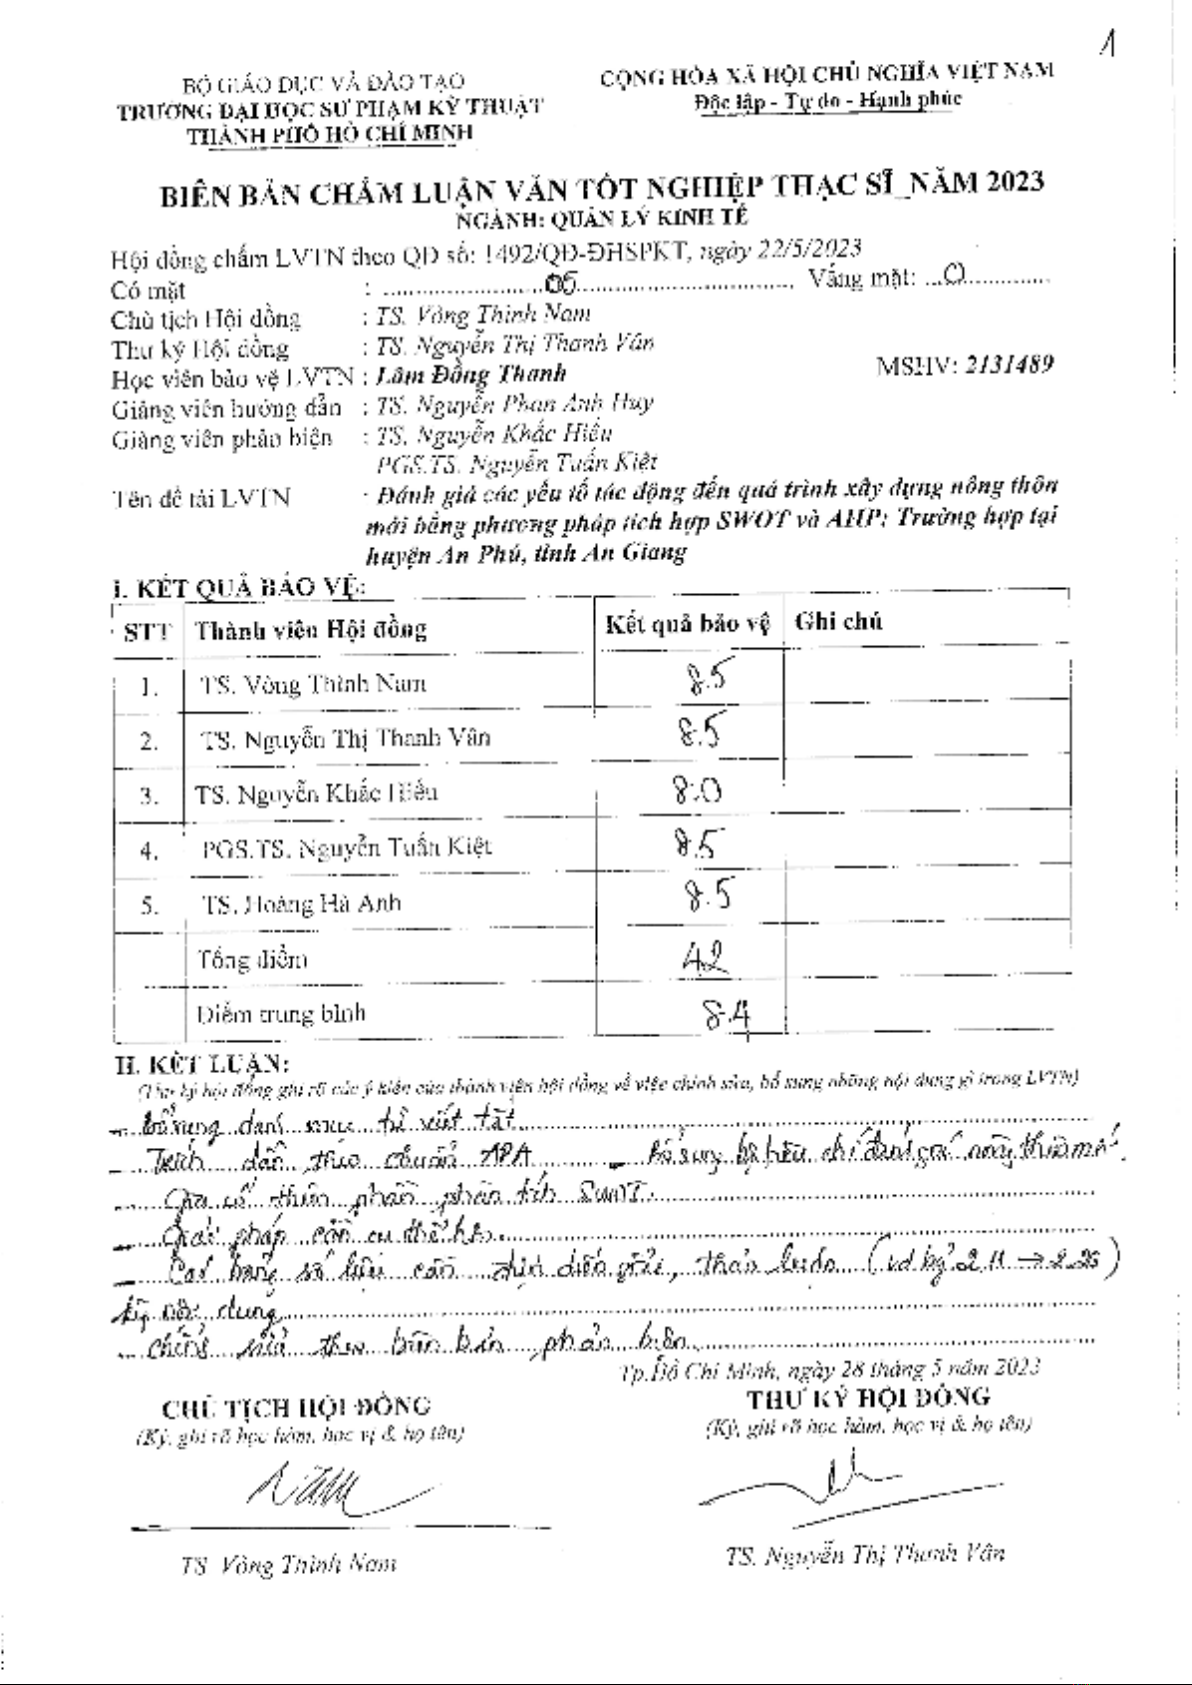 1
BỘ GIÁO DỤC VÀ ĐÀO TẠO
TRƯỜNG ĐẠI HỌC SƯ PHẠM KỸ THUẬT
THÀNH PHỐ HỒ CHÍ MINH
CỘNG HÒA XÃ HỘI CHỦ NGHĨA VIỆT NAM
Độc lập - Tự do - Hạnh phúc
BIÊN BẢN CHẤM LUẬN VĂN TỐT NGHIỆP THẠC SĨ_NĂM 2023
NGÀNH: QUẢN LÝ KINH TẾ
Hội đồng chấm LVTN theo QĐ số: 1492/QĐ-ĐHSPKT, ngày 22/5/2023
Có mặt : 05 Vắng mặt: 0
Chủ tịch Hội đồng : TS. Vòng Thình Nam
Thư ký Hội đồng : TS. Nguyễn Thị Thanh Vân
Học viên bảo vệ LVTN : Lâm Đồng Thanh MSHV: 2131489
Giảng viên hướng dẫn : TS. Nguyễn Phan Anh Huy
Giảng viên phản biện : TS. Nguyễn Khắc Hiếu
PGS.TS. Nguyễn Tuấn Kiệt
Tên đề tài LVTN : Đánh giá các yếu tố tác động đến quá trình xây dựng nông thôn
mới bằng phương pháp tích hợp SWOT và AHP: Trường hợp tại
huyện An Phú, tỉnh An Giang
I. KẾT QUẢ BẢO VỆ:
STT Thành viên Hội đồng Kết quả bảo vệ Ghi chú
1. TS. Vòng Thình Nam 8.5
2. TS. Nguyễn Thị Thanh Vân 8.5
3. TS. Nguyễn Khắc Hiếu 8.0
4. PGS.TS. Nguyễn Tuấn Kiệt 8.5
5. TS. Hoàng Hà Anh 8.5
Tổng điểm 42
Điểm trung bình 8.4
II. KẾT LUẬN:
(Thư ký hội đồng ghi rõ các ý kiến của thành viên hội đồng về việc chỉnh sửa, bổ sung những nội dung gì trong LVTN)
- Bổ sung danh mục từ viết tắt
- Trích dẫn theo chuẩn APA - Bổ sung bộ tiêu chí đánh giá nông thôn mới
- phần phân tích SWOT.
- Giải pháp cần cụ thể hơn.
- Các bảng số liệu cần diễn giải, thảo luận (vd 2.11 → 2.25)
nội dung
- Chỉnh sửa theo biên bản phản biện
Tp.Hồ Chí Minh, ngày 28 tháng 5 năm 2023
CHỦ TỊCH HỘI ĐỒNG
(Ký, ghi rõ học hàm, học vị & họ tên)
TS. Vòng Thình Nam
THƯ KÝ HỘI ĐỒNG
(Ký, ghi rõ học hàm, học vị & họ tên)
TS. Nguyễn Thị Thanh Vân